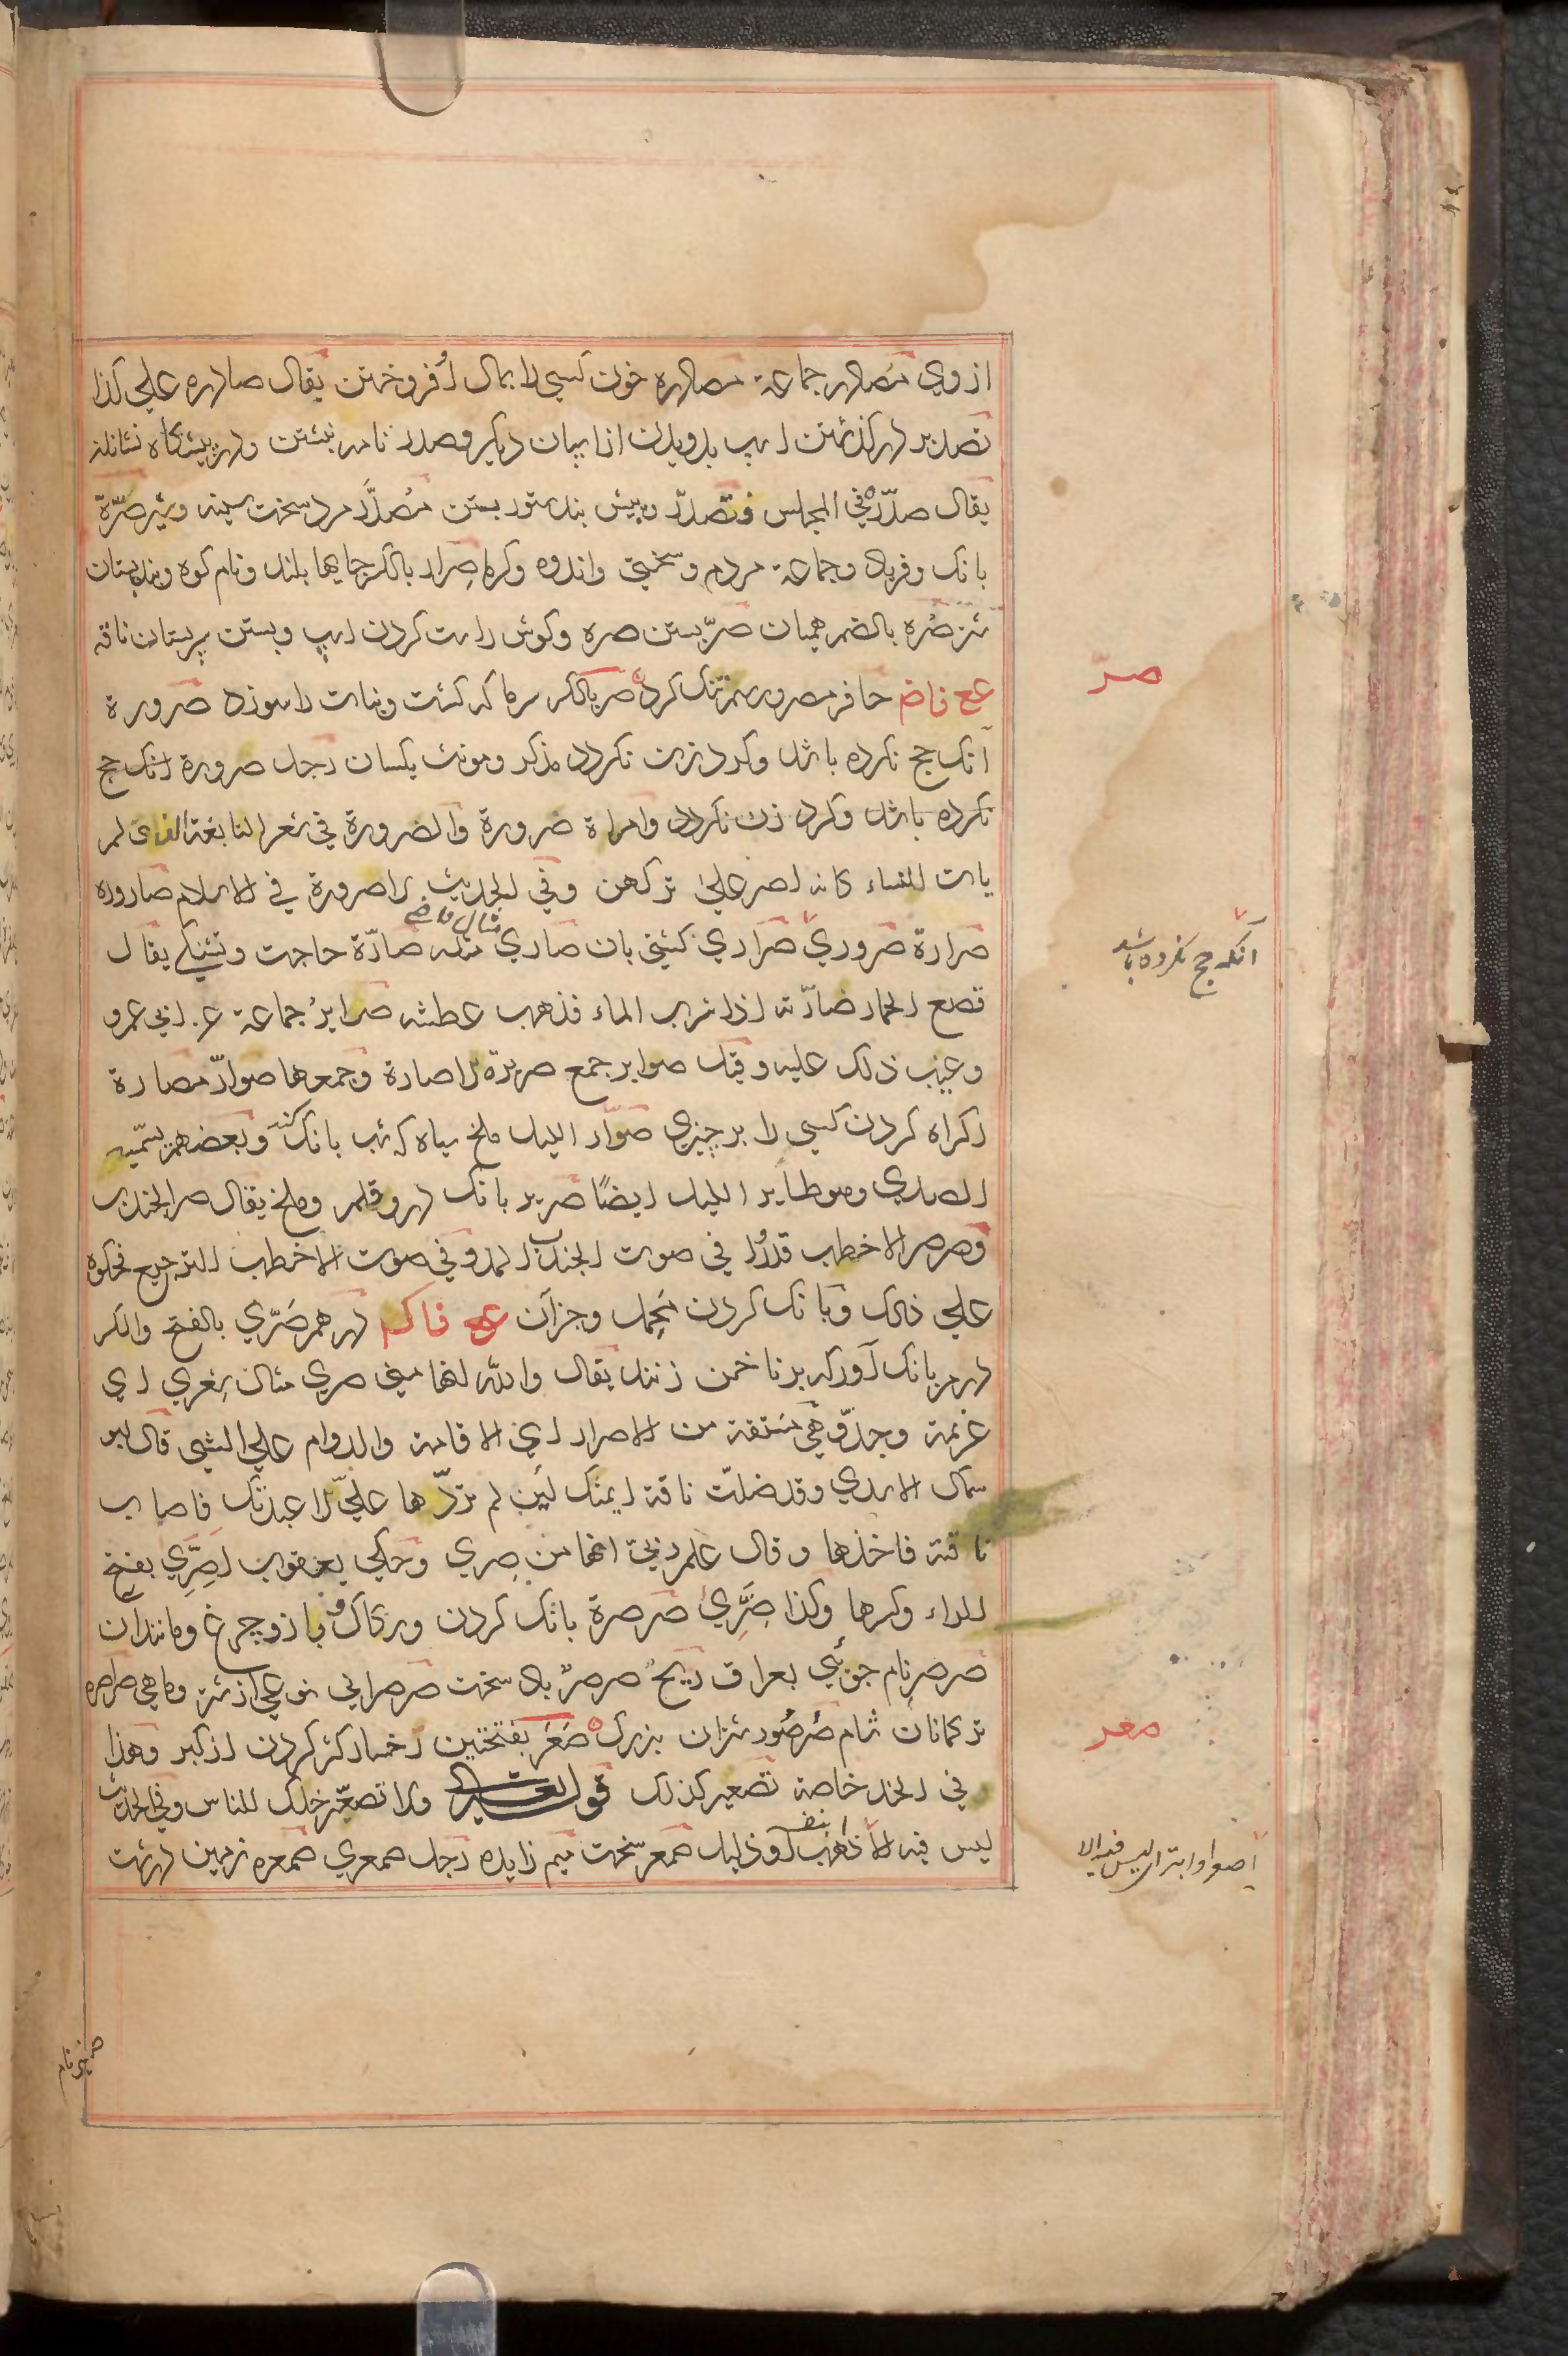 از وی مصادر جماعة مصادره خون کسی را بمال افروختن یقال صادره علی کذا
تصدیر درگذشتن اسپ بدویدن از اسپان دیگر وصدر نامه نبشتن ودر پیشگاه نشاندن
یقال صدّره فی المجلس فتصدّر وپیش بند ستور بستن مُصدَّر مرد سخت سینه وشیر صرّة
بانک وفریاد وجماعة مردم وسختی واندوه وکرما صِرار بالکسر جایها بلند ونام کوه وبند پستان
شتر صُره بالضم همیان صرّ بستن صره وکوش راست کردن اسپ وبستن پستان ناقه
حافر مصرور سم تنک کرد صر بالکسر سرما که کشت ونبات را سوزد صرورة
آنک حج نکرده باشد وکرد زن نکردد مذکر ومونث یکسان رجل صرورة آنک حج
نکرده باشد وکرد زن نکردد وامراة صرورة والصرورة فی شعر النابغة الذی لم
یات النساء کانه اصر علی ترکهن وفی الحدیث لا صرورة فی الاسلام صاروره
صرارة صروری صراری کشتی بان صاری مثله صارّة حاجت وتشنکی یقال
مثال قاضی
قصع الحمار صارّته اذا شرب الماء فذهب عطشه صرایر جماعة عن ابی عمرو
وعیب ذلک علیه وقیل صرایر جمع صریرة لا صارة وجمعها صوارّ مصارة
اکراه کردن کسی را بر چیزی صرّار اللیل ملخ سیاه که شب بانک کند وبعضهم یسمّیه
الصدی وهو طایر اللیل ایضًا صریر بانک در وقلم وملخ یقال صر الجندب
وصرصر الاخطب قدروا فی صوت الجندب المد وفی صوت الاخطب الترجیع فحکوه
علی ذلک وبانک کردن محمل وجزآن درهم صَرّی بالفتح والکسر
درم بانک آور که بر ناخن زنند یقال والله انها منی صری مثال شعری ای
عزیمة وجدّ وهی مشتقة من الاصرار ای الاقامة والدوام علی الشی قال ابو
سمال الاسدی وقد ضلّت ناقة ایمنک لین لم تردّها علیّ لا عبدتک فاصاب
ناقته فاخذها وقال علم ربّی انها من صِری وحکی یعقوب اصِرِّی بفتح
الراء وکسرها وکذا صِرِّی صرصرة بانک کردن ورکاک وباز وچرغ ومانند آن
صرصر نام جوئی بعراق ریحٌ صرصرٌ باد سخت صرصرانی نوعی از شتر وماهی صراصره
ترکمانان شام صُرصُور شتران بزرک صَعَر بفتحتین رخسار کژ کردن از کبر وهذا
فی الخد خاصة تصعیر کذلک قوله تعالی ولا تصعّر خدک للناس وفی الحدیث
لیس فیه الا ذاهب بنفسه او ذلیل صمعر سخت میم زایده رجل صمعری صمعره زمین درشت
صرّ
آنکه حج نکرده باشد
صعر
اصعر او ابتر ای لیس فیه الا